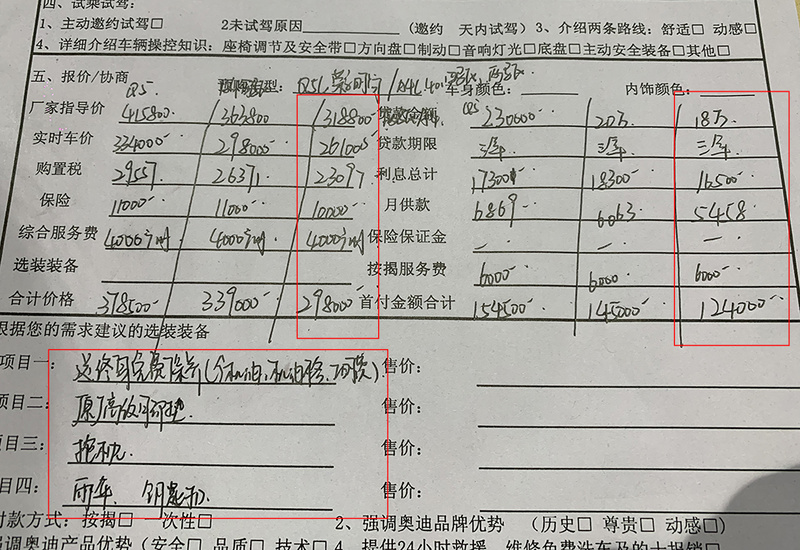 四、试乘试驾:
1、主动邀约试驾□ 2未试驾原因 (邀约 天内试驾) 3、介绍两条路线: 舒适□ 动感□
4、详细介绍车辆操控知识: 座椅调节及安全带□方向盘□制动□音响灯光□底盘□主动安全装备□其他□
五、报价/协商 车身颜色: 内饰颜色:
Q5
厂家指导价 415800 363800 318800 贷款金额 230000 20万 18万
实时车价 334000 298000 261000 贷款期限 三年 三年 三年
购置税 29557 26371 23097 利息总计 17300 18300 16500
保险 11000 11000 10000 月供款 6869 6063 5458
综合服务费 4000 4000 4000 保险保证金 一 一 一
选装装备 按揭服务费 6000 6000 6000
合计价格 378500 339000 298000 首付金额合计 154500 145000 124000
根据您的需求建议的选装装备
项目一: 送终身免费保养(含机油、机油格、工时费) 售价:
项目二: 原厂高低可脚垫 售价:
项目三: 抱枕 售价:
项目四: 雨伞、钥匙扣 售价:
付款方式: 按揭□ 一次性□ 2、强调奥迪品牌优势 (历史□ 尊贵□ 动感□)
强调奥迪产品优势(安全□ 品质□ 技术□ 4、提供24小时救援、维修免费洗车及的士报销□